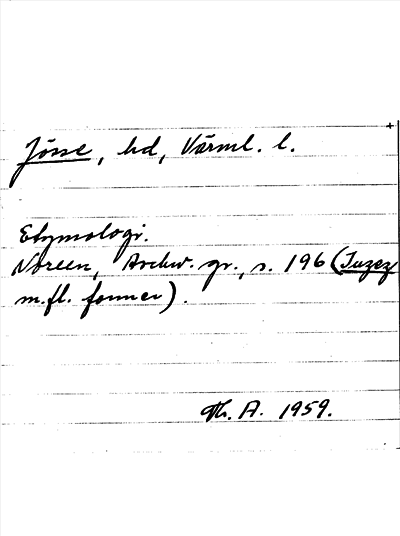 Jösse, hd, Värml. l.
Etymologi.
Noreen, Aschw. gr., s. 196 (Juzez
m.fl. former).
Th. A. 1959.